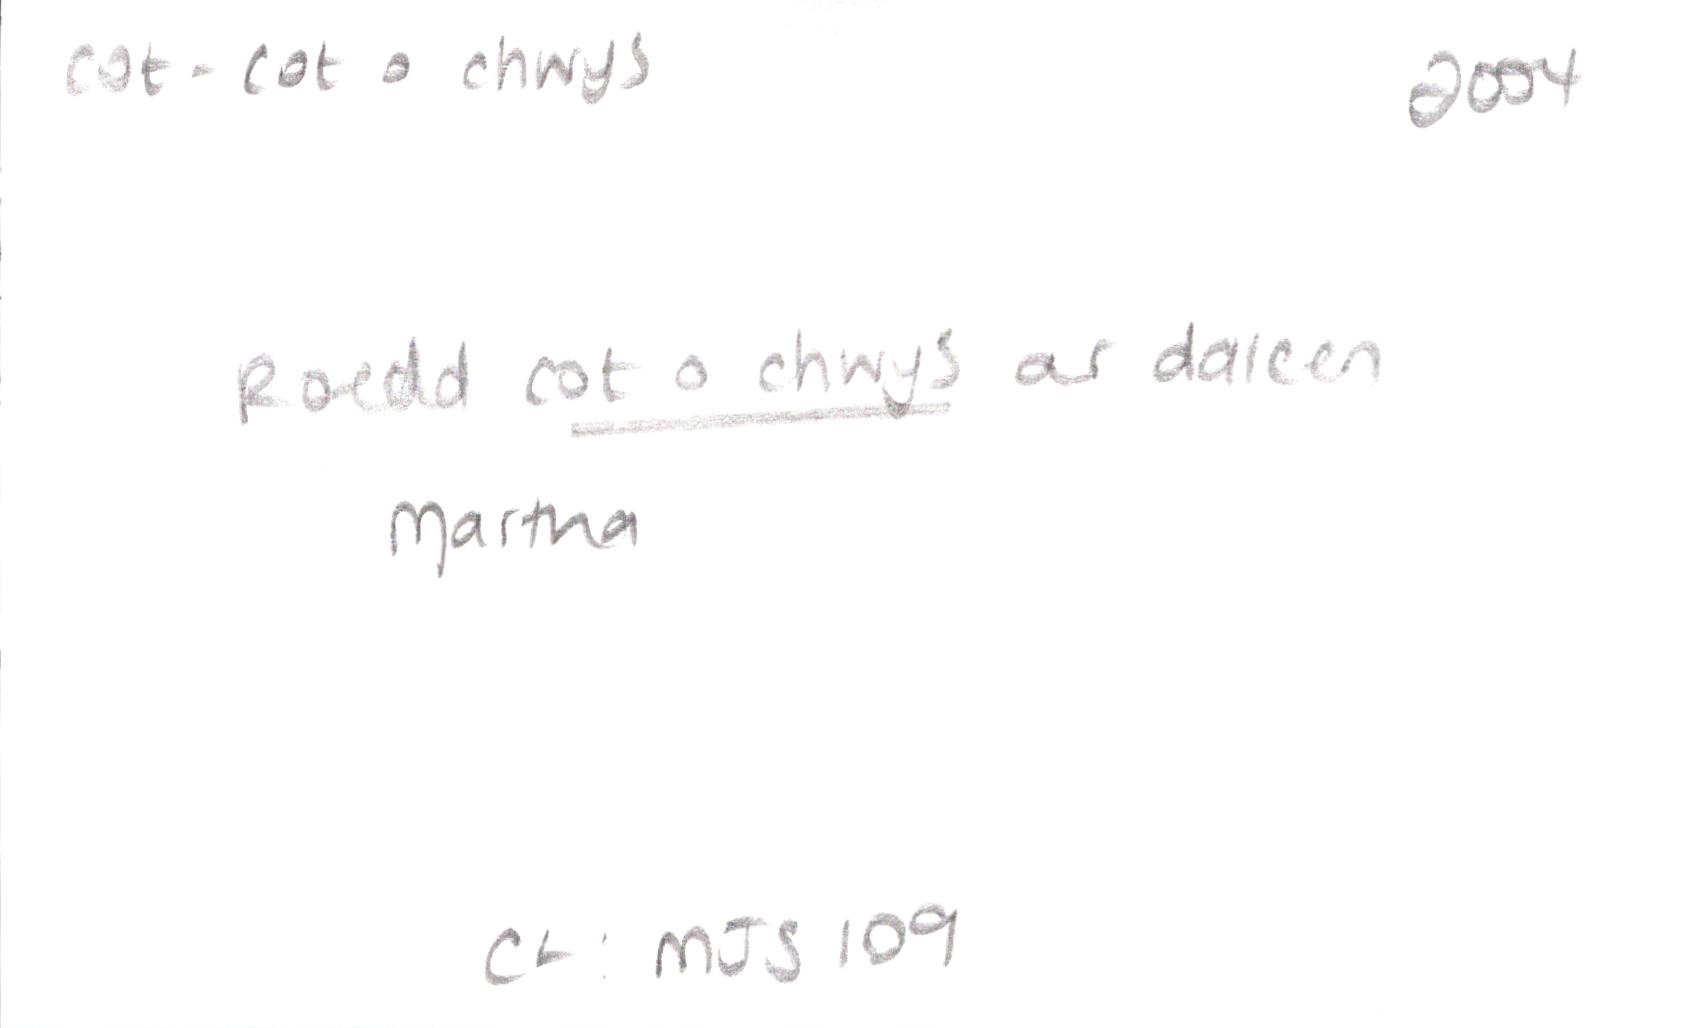 cot - cot o chwys 2004
Roedd cot o chwys ar dalcen
Martha
CL: MJS 109